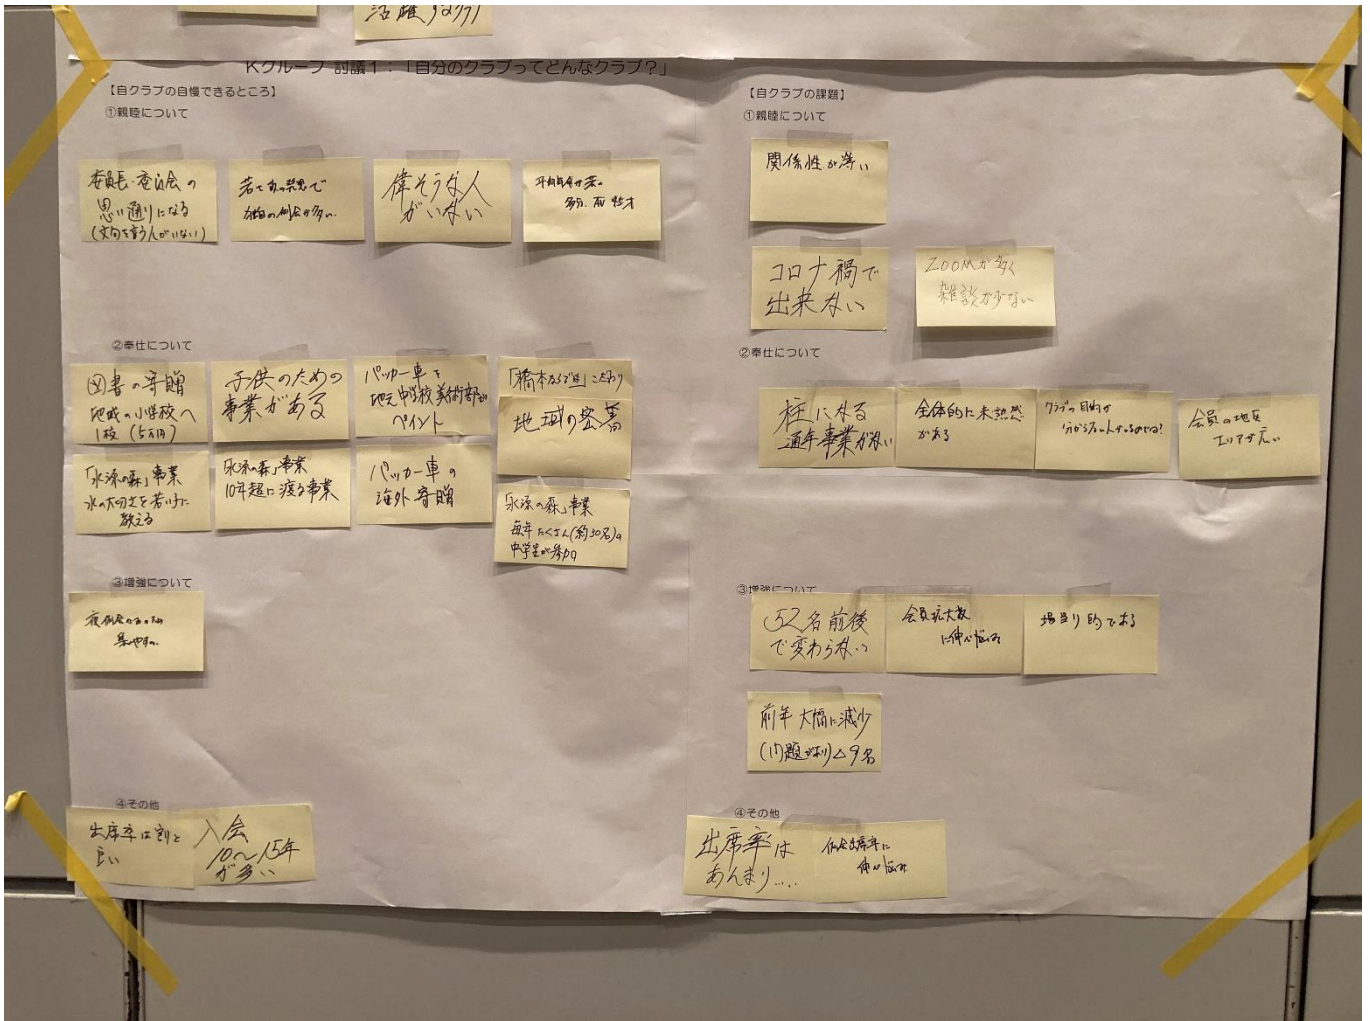 活躍
Kグループ 討議1:「自分のクラブってどんなクラブ?」
【自クラブの自慢できるところ】
①親睦について
委員長・委員会の
思い通りになる
(文句を言う人がいない)
偉そうな人
がいない
②奉仕について
図書の寄贈
地域の小学校へ
1校(5万円)
子供のための
事業がある
パッカー車を
地元中学校美術部が
ペイント
「橋本ならでは」こだわり
地域の密着
「水源の森」事業
水の大切さを若い子に
教える
「水源の森」事業
10年超に渡る事業
パッカー車の
海外寄贈
「水源の森」事業
毎年たくさん(約30名)の
中学生が参加
③増強について
④その他
出席率は割と
良い
入会
10〜15年
が多い
【自クラブの課題】
①親睦について
関係性が薄い
コロナ禍で
出来ない
ZOOMが多く
雑談が少ない
②奉仕について
柱になる
通年事業がない
全体的に未熟感
がある
クラブの目的が
会員の地区
エリアが広い
③増強について
52名前後
で変わらない
会員拡大数
に伸び悩み
場当り的である
前年大幅に減少
(問題があり)△9名
④その他
出席率は
あんまり....
例会出席率に
伸び悩み